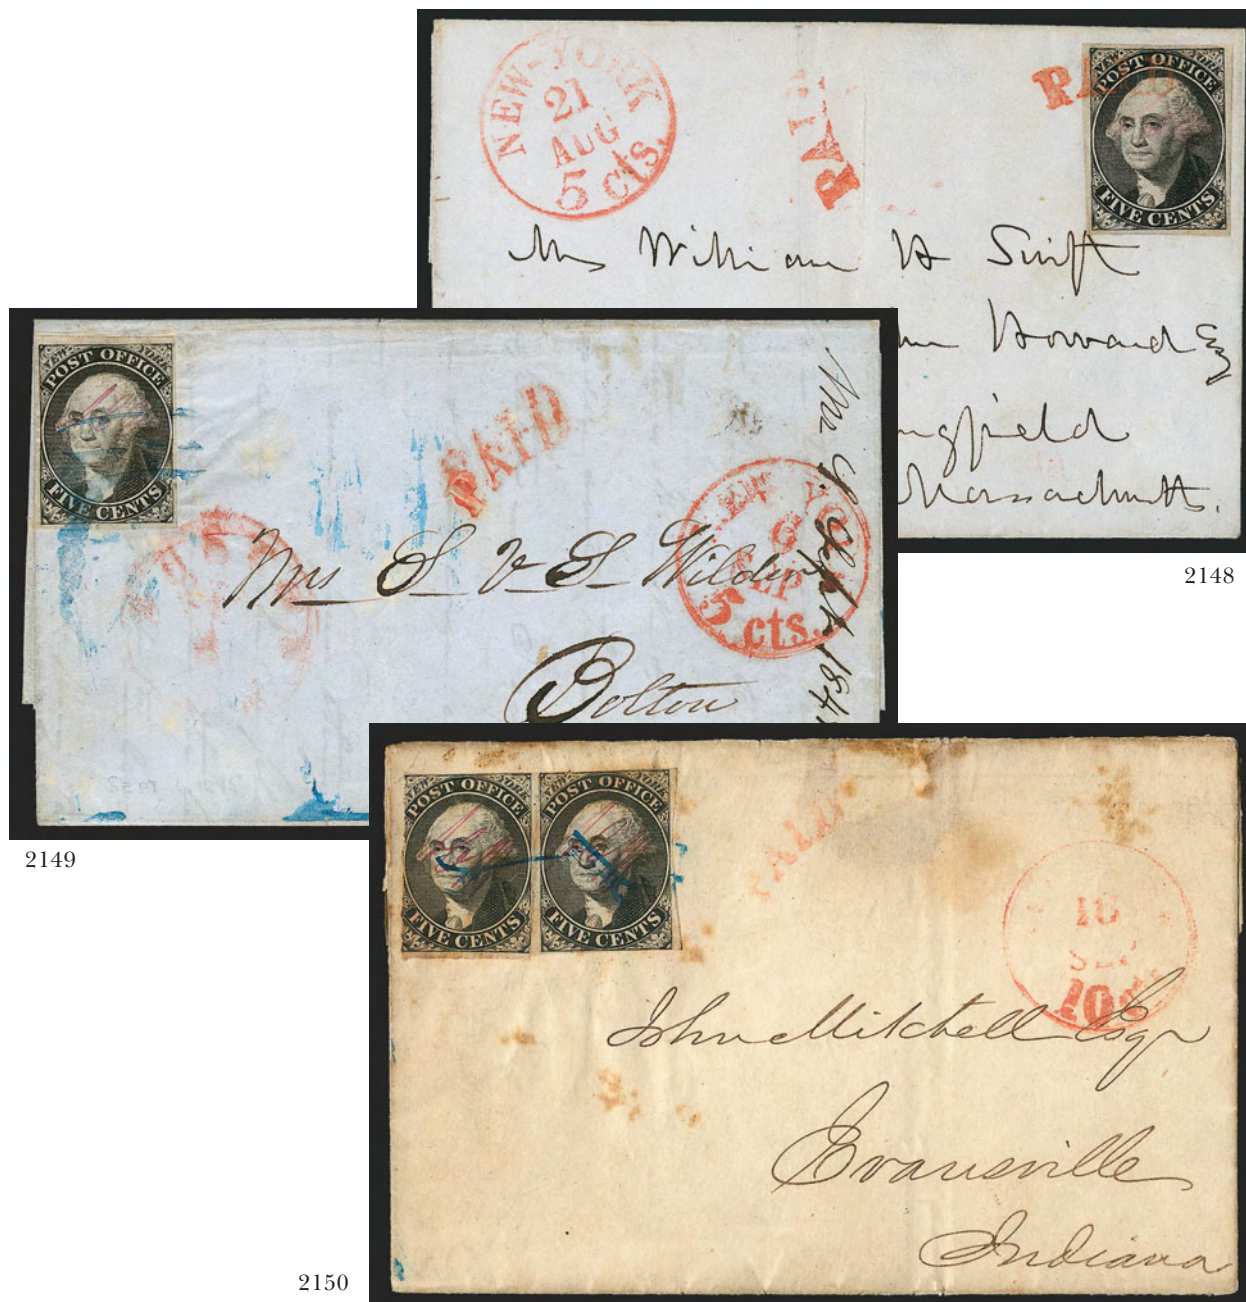 NEW-YORK
21
AUG
5 cts.
PAID
PAID
POST OFFICE
FIVE CENTS
Mrs William H Swift
Howard Esq
ngfield
Massachusetts.
2148
POST OFFICE
FIVE CENTS
PAID
EW YO
6
SEP
5 cts.
Mrs S V S Wilder
Bolton
Sept
2149
POST OFFICE
FIVE CENTS
POST OFFICE
FIVE CENTS
PAID
10
SEP
10c
John Mitchell Esqr
Evansville
Indiana
2150